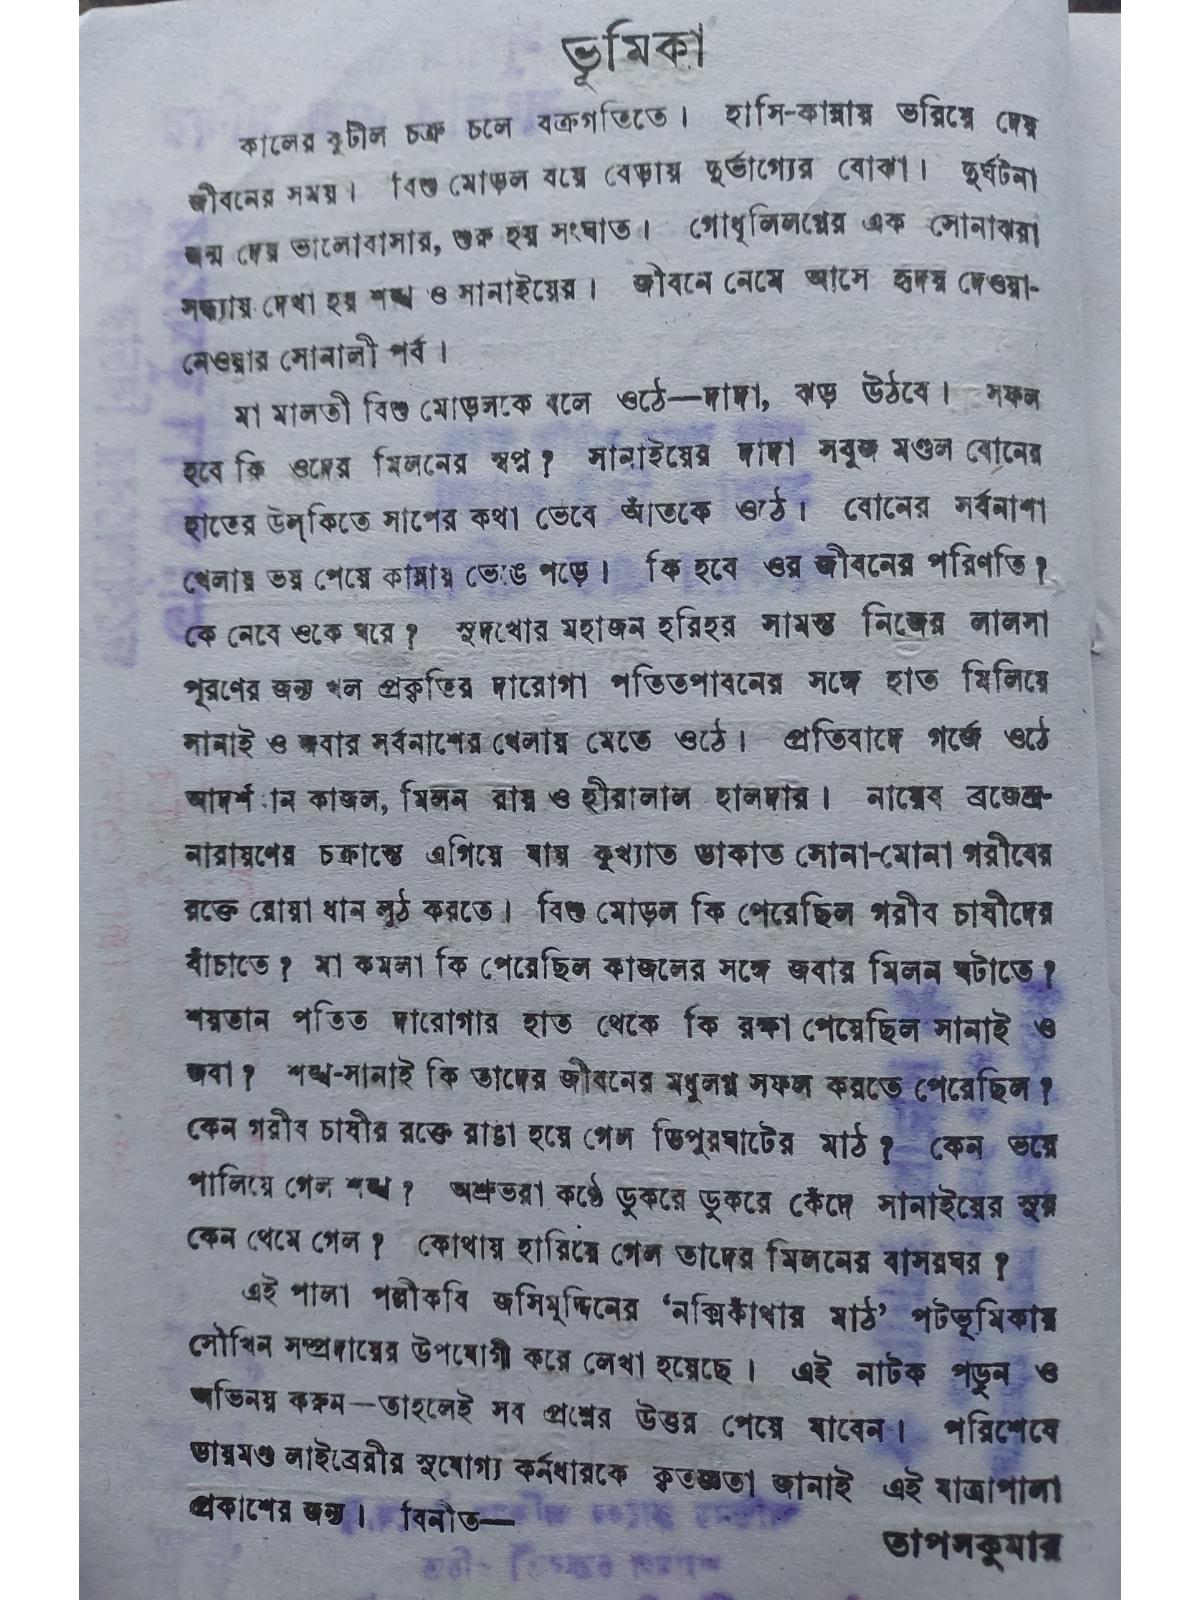 ভূমিকা
কালের কুটীল চক্র চলে বক্রগতিতে। হাসি-কান্নায় ভরিয়ে দেয়
জীবনের সময়। বিশু মোড়ল বয়ে বেড়ায় দুর্ভাগ্যের বোঝা। দুর্ঘটনা
জন্ম দেয় ভালোবাসার, শুরু হয় সংঘাত। গোধূলিলগ্নের এক সোনাঝরা
সন্ধ্যায় দেখা হয় শঙ্খ ও সানাইয়ের। জীবনে নেমে আসে হৃদয় দেওয়া-
নেওয়ার সোনালী পর্ব।
মা মালতী বিশু মোড়লকে বলে ওঠে—দাদা, ঝড় উঠবে। সফল
হবে কি ওদের মিলনের স্বপ্ন? সানাইয়ের দাদা সবুজ মণ্ডল বোনের
হাতের উল্‌কিতে সাপের কথা ভেবে আঁতকে ওঠে। বোনের সর্বনাশা
খেলায় ভয় পেয়ে কান্নায় ভেঙে পড়ে। কি হবে ওর জীবনের পরিণতি?
কে নেবে ওকে ঘরে? সুদখোর মহাজন হরিহর সামন্ত নিজের লালসা
পূরণের জন্য খল প্রকৃতির দারোগা পতিতপাবনের সঙ্গে হাত মিলিয়ে
সানাই ও জবার সর্বনাশের খেলায় মেতে ওঠে। প্রতিবাদে গর্জে ওঠে
আদর্শবান কাজল, মিলন রায় ও হীরালাল হালদার। নায়েব ব্রজেন্দ্র-
নারায়ণের চক্রান্তে এগিয়ে যায় কুখ্যাত ডাকাত সোনা-মোনা গরীবের
রক্তে রোয়া ধান লুঠ করতে। বিশু মোড়ল কি পেরেছিল গরীব চাষীদের
বাঁচাতে? মা কমলা কি পেরেছিল কাজলের সঙ্গে জবার মিলন ঘটাতে?
শয়তান পতিত দারোগার হাত থেকে কি রক্ষা পেয়েছিল সানাই ও
জবা? শঙ্খ-সানাই কি তাদের জীবনের মধুলগ্ন সফল করতে পেরেছিল?
কেন গরীব চাষীর রক্তে রাঙা হয়ে গেল ভিপুরঘাটের মাঠ? কেন ভয়ে
পালিয়ে গেল শঙ্খ? অশ্রুভরা কণ্ঠে ডুকরে ডুকরে কেঁদে সানাইয়ের সুর
কেন থেমে গেল? কোথায় হারিয়ে গেল তাদের মিলনের বাসরঘর?
এই পালা পল্লীকবি জসিমুদ্দিনের ‘নক্সিকাঁথার মাঠ’ পটভূমিকায়
সৌখিন সম্প্রদায়ের উপযোগী করে লেখা হয়েছে। এই নাটক পড়ুন ও
অভিনয় করুন—তাহলেই সব প্রশ্নের উত্তর পেয়ে যাবেন। পরিশেষে
ডায়মণ্ড লাইব্রেরীর সুযোগ্য কর্নধারকে কৃতজ্ঞতা জানাই এই যাত্রাপালা
প্রকাশের জন্য। বিনীত—
তাপসকুমার